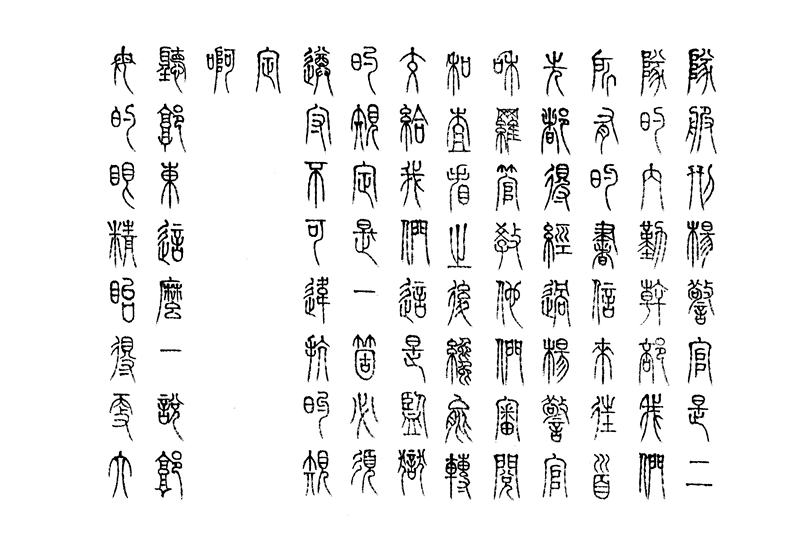 隊服刑楊警官是二
隊的內勤幹部我們
所有的書信來往首
先都得經過楊警官
和羅管教他們審閱
和查看之後纔能轉
交給我們這是監獄
的規定是一箇必須
遵守不可違抗的規
定
啊
聽鄭東這麼一說鄭
毋的眼精眙得更大